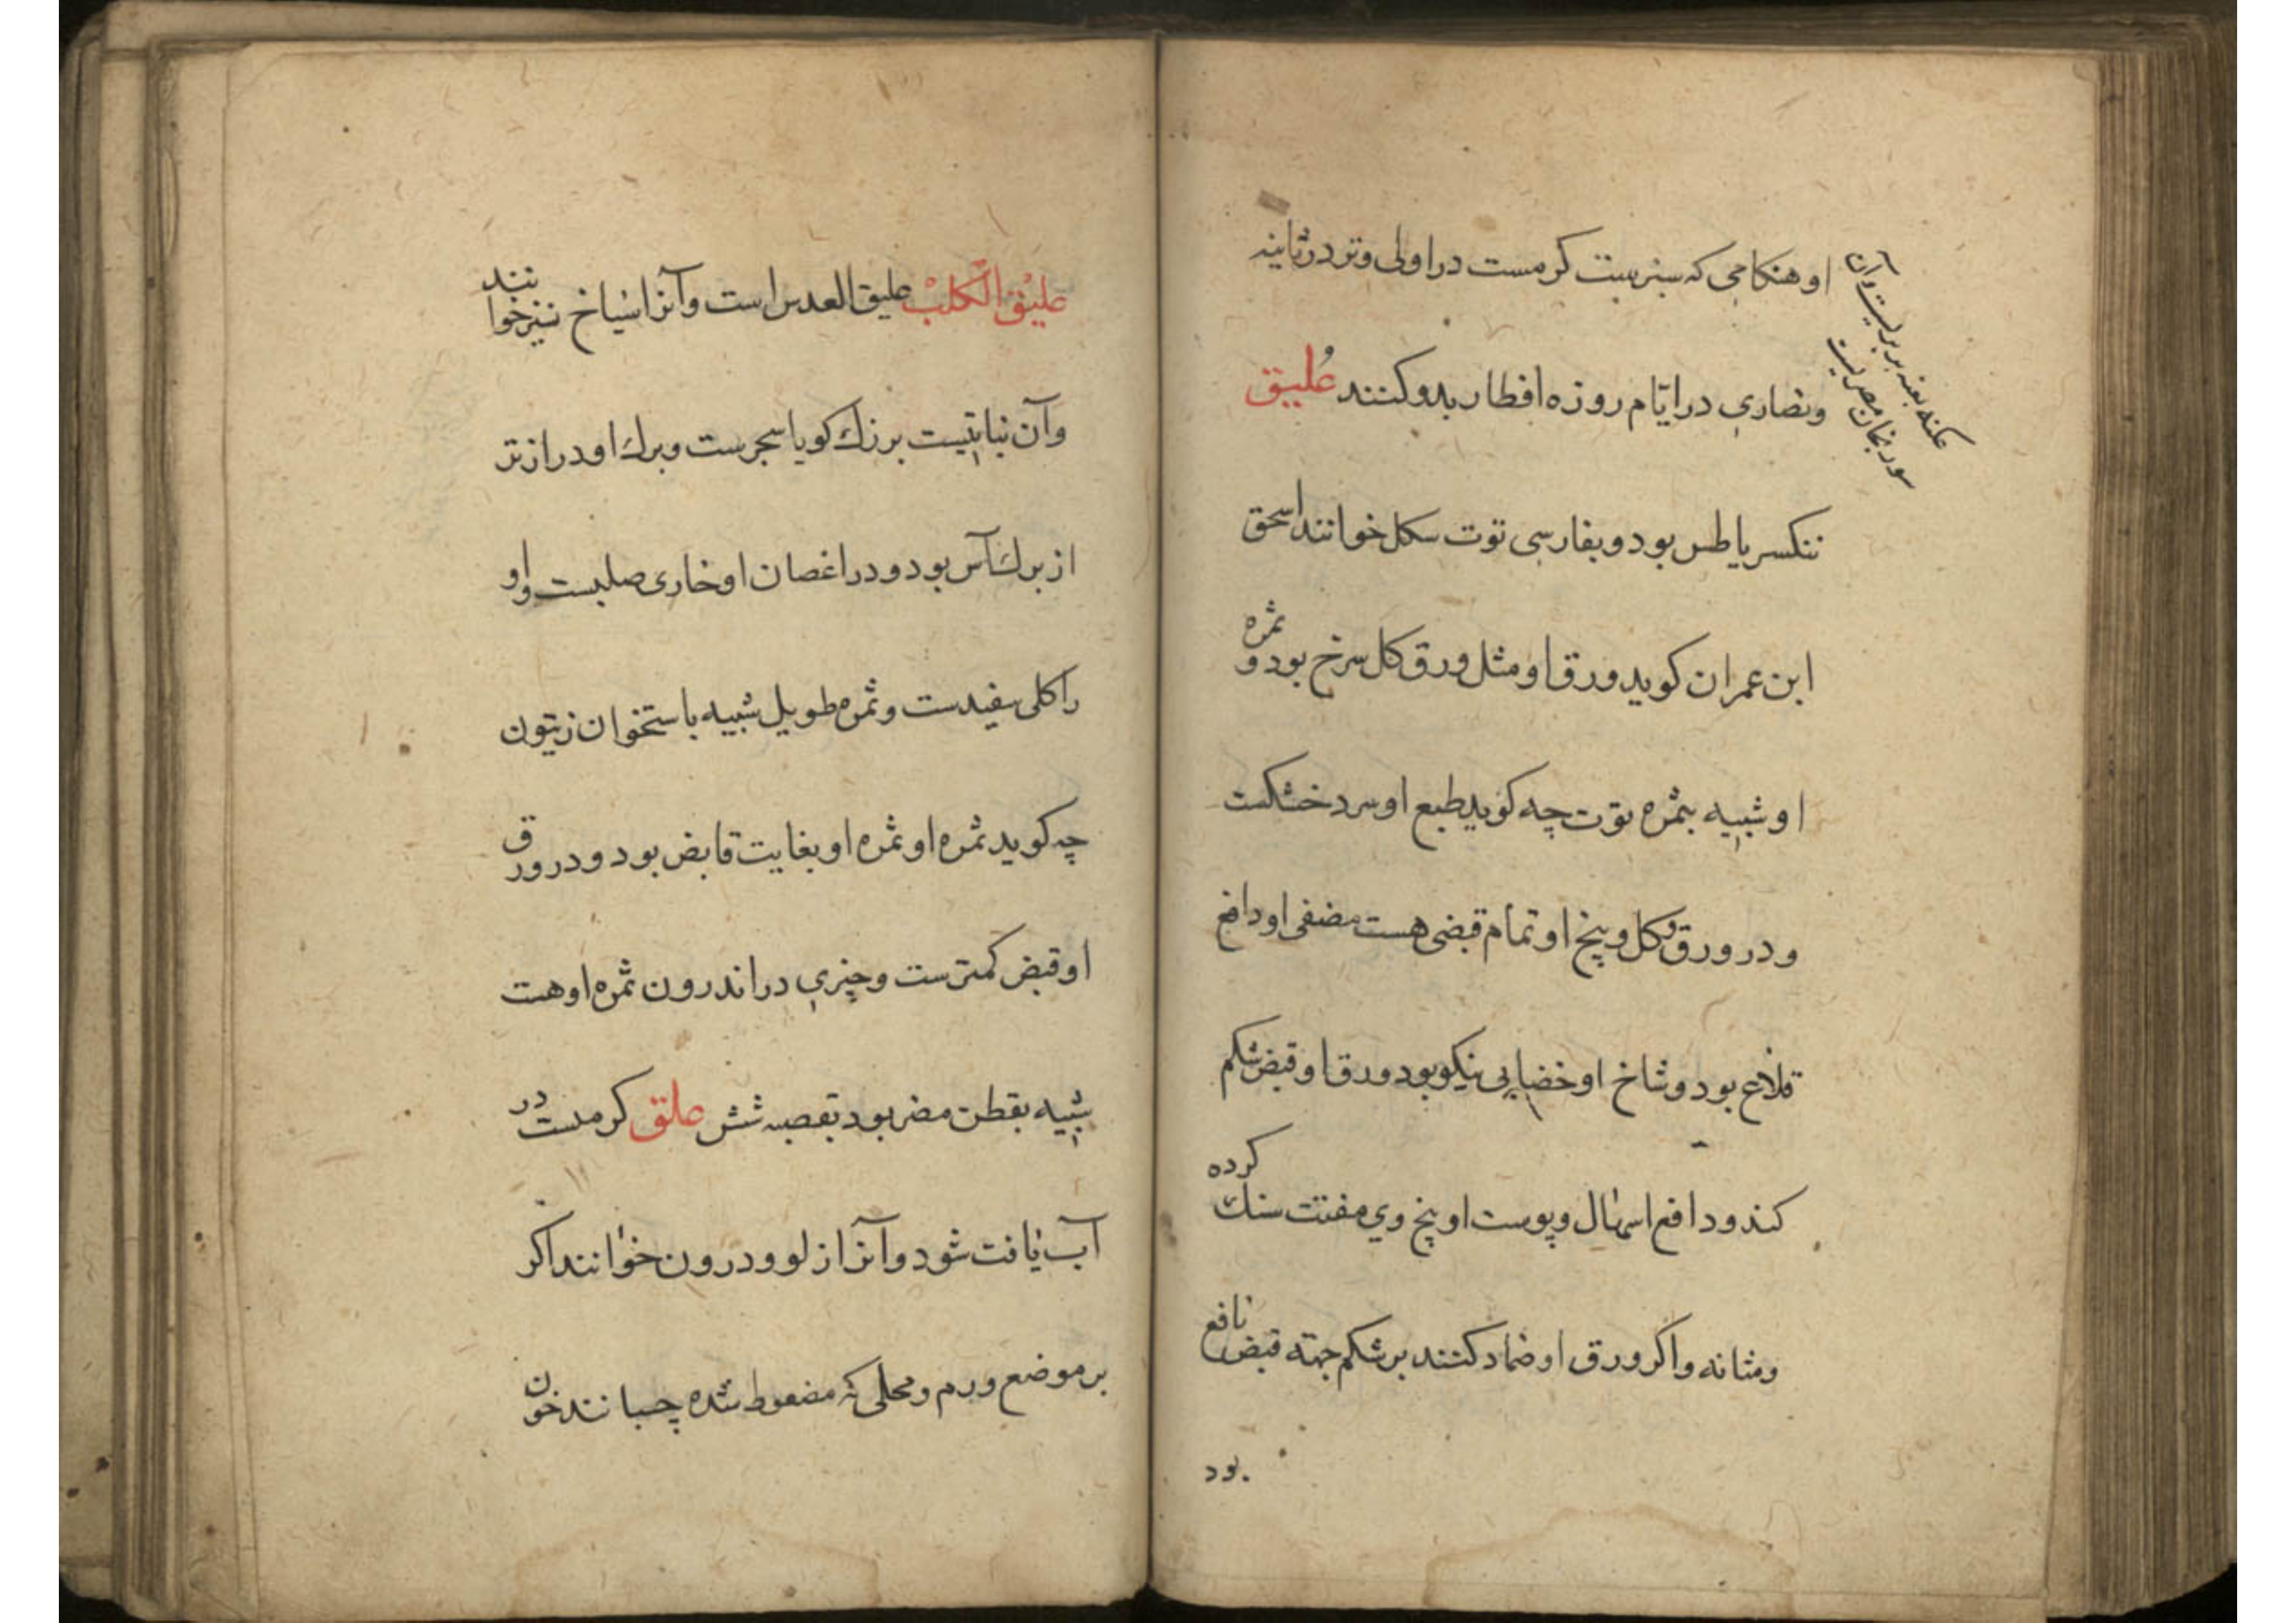 او هنکامی که سبزست کرمست در اولی وتر در ثانیه
ونصاری در ایّام روزه افطار بدو کنند عُلیق
ننکسر یا طس بود و بفارسی توت سکل خوانند اسحق
ابن عمران کوید ورق او مثل ورق کل سرخ بود و ثمره
او شبیه بثمره توت چه کوید طبع او سرد خشکست
ودر ورق وکل وبیخ او تمام قبضی هست مضغی او دافع
قلاع بود وشاخ او خضابی نیکو بود ورق او قبض شکم
کند ودافع اسهال وپوست او بیخ وی مفتت سنك کرده
ومثانه واکر ورق او ضماد کنند بر شکم جهة قبض نافع
بود
عکنه بعنه بربریست وآن
سورنجان مصریست
علیْق الکلبْ علیق العدس است وآنرا سیاخ نیز خوانند
وآن نباتیست بزرك کویا سجرست وبرك او دراز تر
از برك آس بود ودر اغصان او خاری صلبست و او
را کلی سفیدست وثمره طویل شبیه باستخوان زیتون
چه کوید ثمره او ثمره او بغایت قابض بود ودر ورق
او قبض کمترست وچیزی در اندرون ثمره او هست
شبیه بقطن مضر بود بقصبه شش علق کرمست در
آب یافت شود وآنرا زلو ودرون خوانند اکر
بر موضع ورم ومحلی که مضغوط شده چسبانند خون